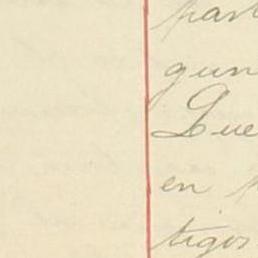 part
gun
Lue
en p
tigos